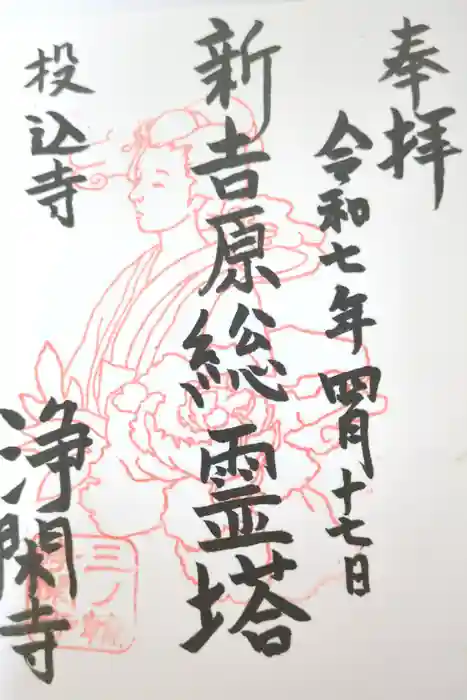 奉拝
令和七年四月十七日
新吉原総霊塔
投込寺
浄閑寺
三ノ